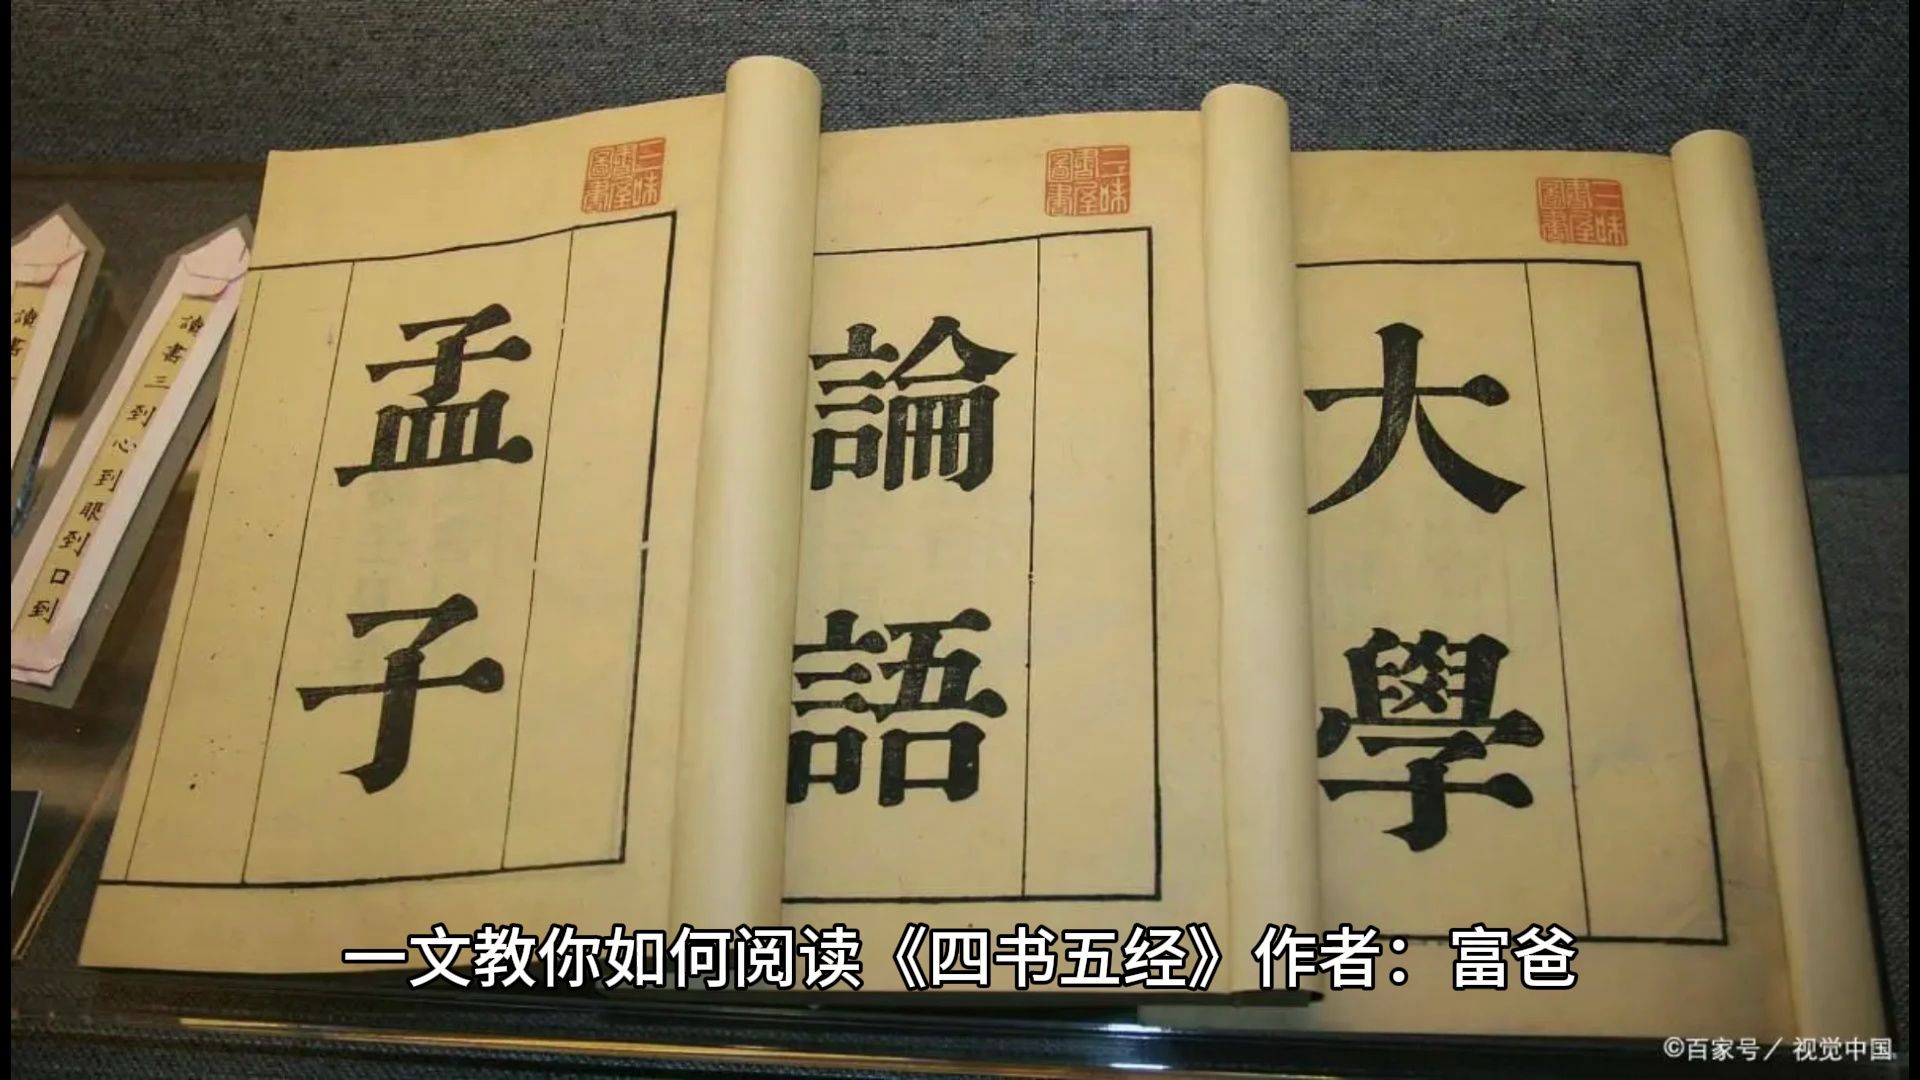 孟子
論語
大學
三味書屋圖書
三味書屋圖書
三味書屋圖書
讀書三到心到眼到口到
讀書
一文教你如何阅读《四书五经》作者：富爸
©百家号／视觉中国